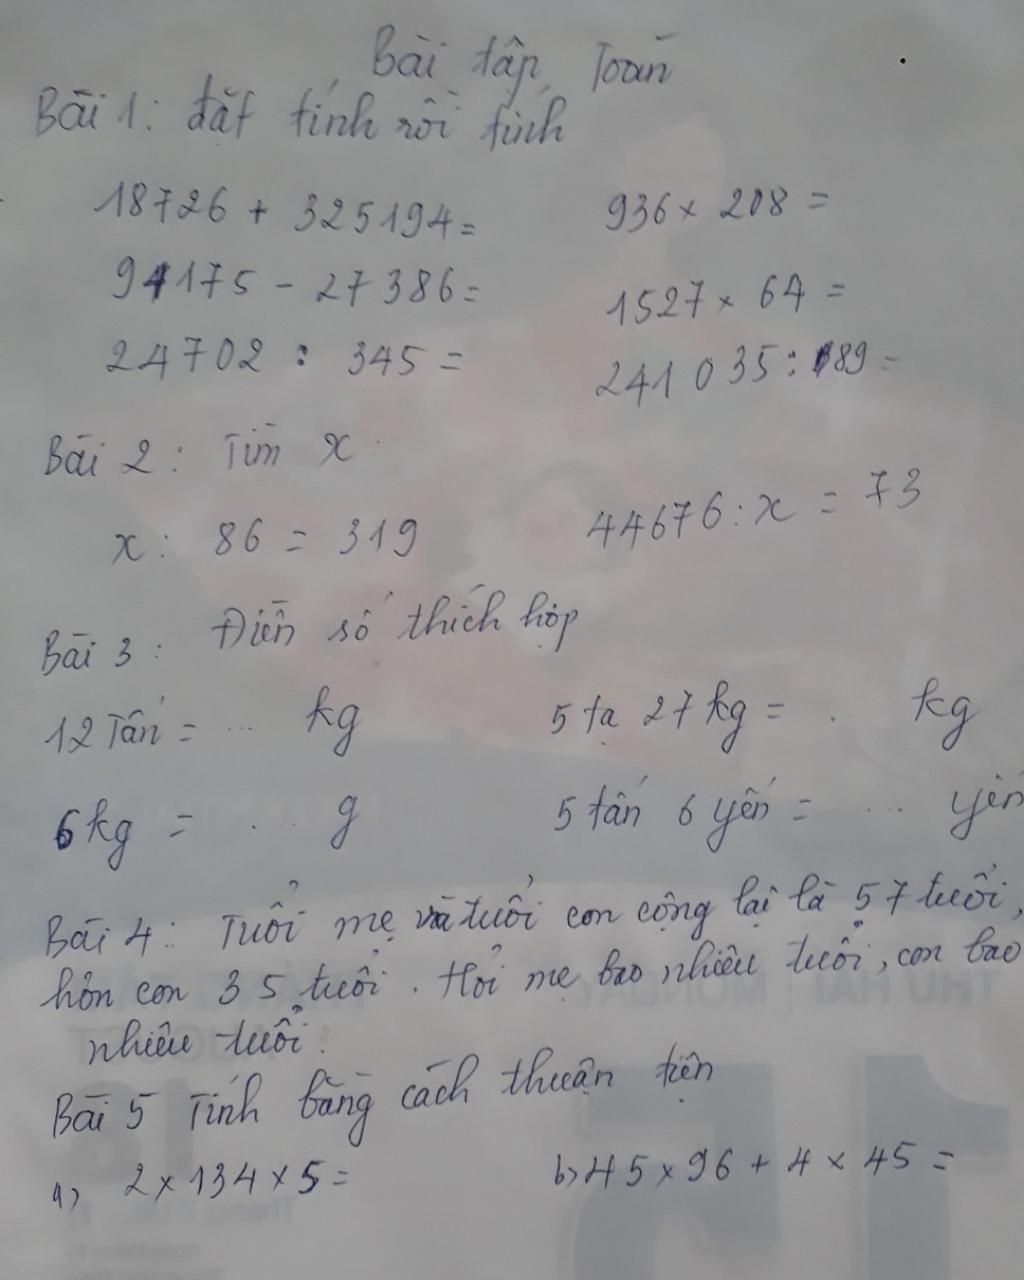 Bài tập Toán
Bài 1: đặt tính rồi tính
18726 + 325194 =
936 x 208 =
94175 - 27386 =
1527 x 64 =
24702 : 345 =
241 035 : 189 =
Bài 2: Tìm x
x : 86 = 319
44676 : x = 73
Bài 3: Điền số thích hợp
12 Tấn = ... kg
5 tạ 27 kg = . kg
6 kg = ... g
5 tấn 6 yến = ... yến
Bài 4: Tuổi mẹ và tuổi con cộng lại là 57 tuổi,
hơn con 35 tuổi. Hỏi mẹ bao nhiêu tuổi, con bao
nhiêu tuổi.
Bài 5 Tính bằng cách thuận tiện
a) 2 x 134 x 5 =
b) 45 x 96 + 4 x 45 =